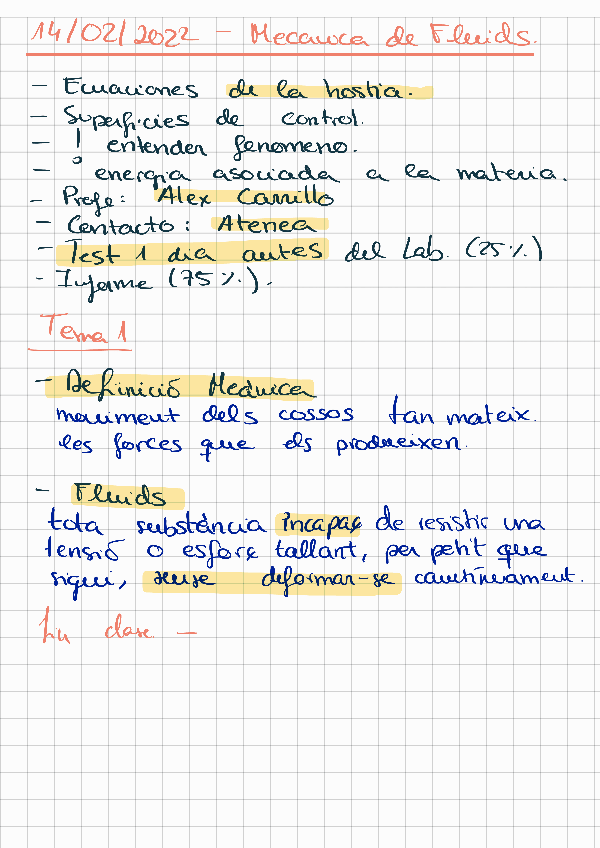 14/02/2022 - Mecanica de Fluids.
- Ecuaciones de la hostia.
- Superficies de control.
- ! entender fenomeno.
- º energia asociada a la materia.
- Profe: Alex Carrillo
- Contacto: Atenea
- Test 1 dia antes del Lab. (25%)
- Informe (75%).
Tema 1
- Definició Mecànica
moviment dels cossos tan mateix.
les forces que els produeixen.
- Fluids
tota substància incapaç de resistir una
tensió o esforç tallant, per petit que
sigui, sense deformar-se contínuament.
fin clase -